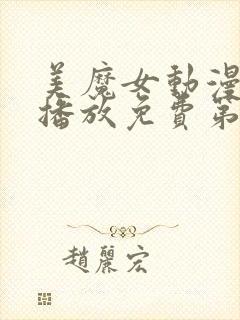 美魔女動漫
播放免費第
趙麗宏